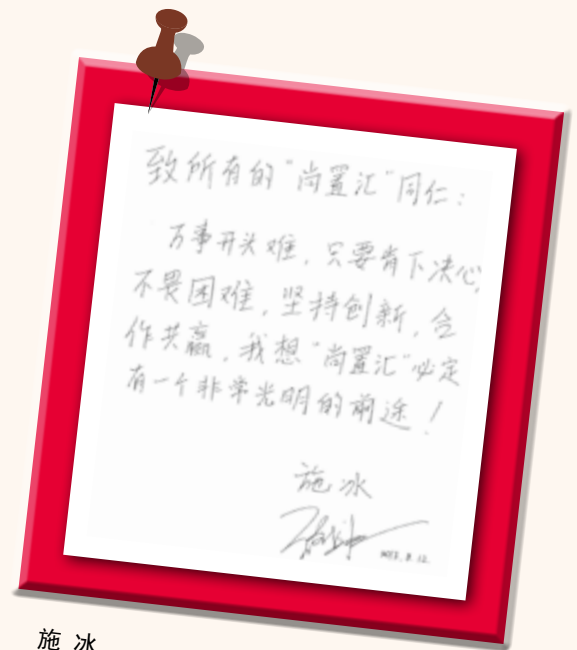 致所有的“尚置汇”同仁：
万事开头难，只要肯下决心，
不畏困难，坚持创新，合
作共赢，我想“尚置汇”必定
有一个非常光明的前途！
施冰
施 冰